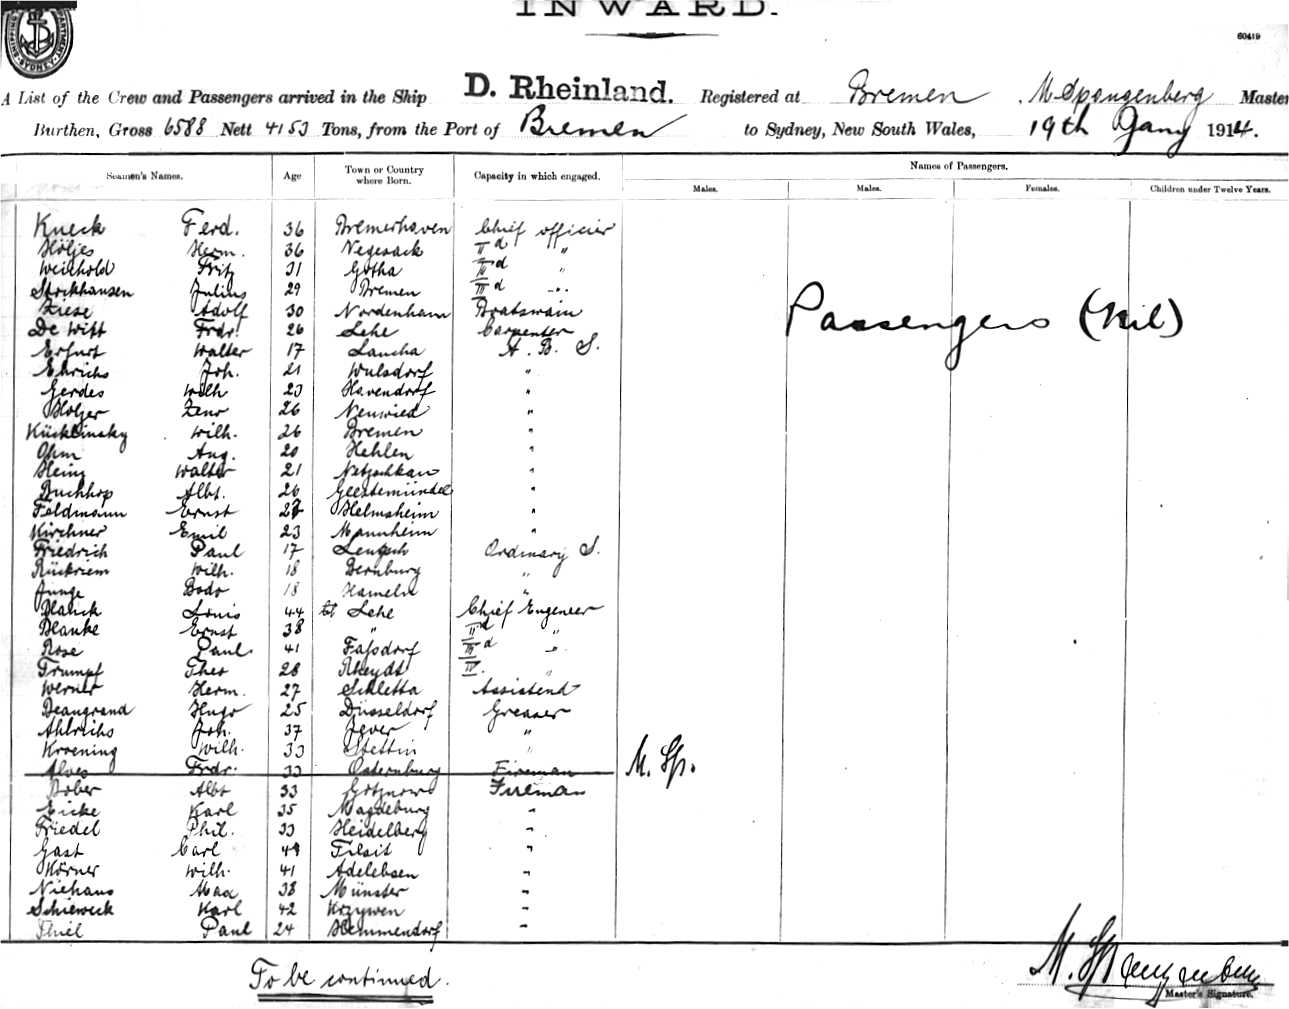 INWARD.
SHIPPING DEPARTMENT SYDNEY
60419
A List of the Crew and Passengers arrived in the Ship D. Rheinland. Registered at Bremen, M Spangenberg Master
Burthen, Gross 6588 Nett 4153 Tons, from the Port of Bremen to Sydney, New South Wales, 19th Jany 1914.
Seamen's Names. Age Town or Country where Born. Capacity in which engaged. Names of Passengers.
Males. Males. Females. Children under Twelve Years.
Kneck Ferd. 36 Bremerhaven Chief officier
Höljes Herm. 36 Vegesack II d "
Weinhold Fritz 31 Gotha II d "
Stockhausen Julius 29 Bremen III d "
Ziese Adolf 30 Nordenham Boatswain
Passengers (Nil)
De Witt Frdr. 26 Lehe Carpenter
Erfurt Walter 17 Laucha A. B. S.
Ehrichs Joh. 21 Wulsdorf "
Gerdes Wilh 23 Havendorf "
Holzer Zeno 26 Neuwied "
Kücklinsky Wilh. 26 Bremen "
Ohm Aug. 20 Hehlen "
Heinz Walter 21 Netzschkau "
Buchhop Albt. 26 Geestemündel "
Feldmann Ernst Helmsheim "
Kirchner Emil 23 Mannheim "
Friedrich Paul 17 Ordinary S.
Rückriem Wilh. 18 Bernburg "
Junge Bodo 18 Hameln "
Blanck Louis 44 Lehe Chief Engeneer
Blanke Ernst 38 " II d "
Rose Paul 41 Faßdorf III d "
Trumpf Theo 28 Rheydt IV. "
Werner Herm. 27 Schletta Assistend
Beaugrand Hugo 25 Düsseldorf Greaser
Ahlrichs Joh. 37 Jever "
Kroening Wilh. 33 Stettin "
Alves Frdr. 33 Osternburg Fireman M. Sp.
Dober Albt 33 Fireman
Eicke Karl 35 Magdeburg "
Friedel Phil. 33 Heidelberg "
Gast Carl 49 Tilsit "
Körner Wilh. 41 Adelebsen "
Niehaus Max 38 Münster "
Schieweck Karl 42 Krzywen "
Thiel Paul 24 Hemmendorf "
To be continued.
M. Spangenberg
Master's Signature.